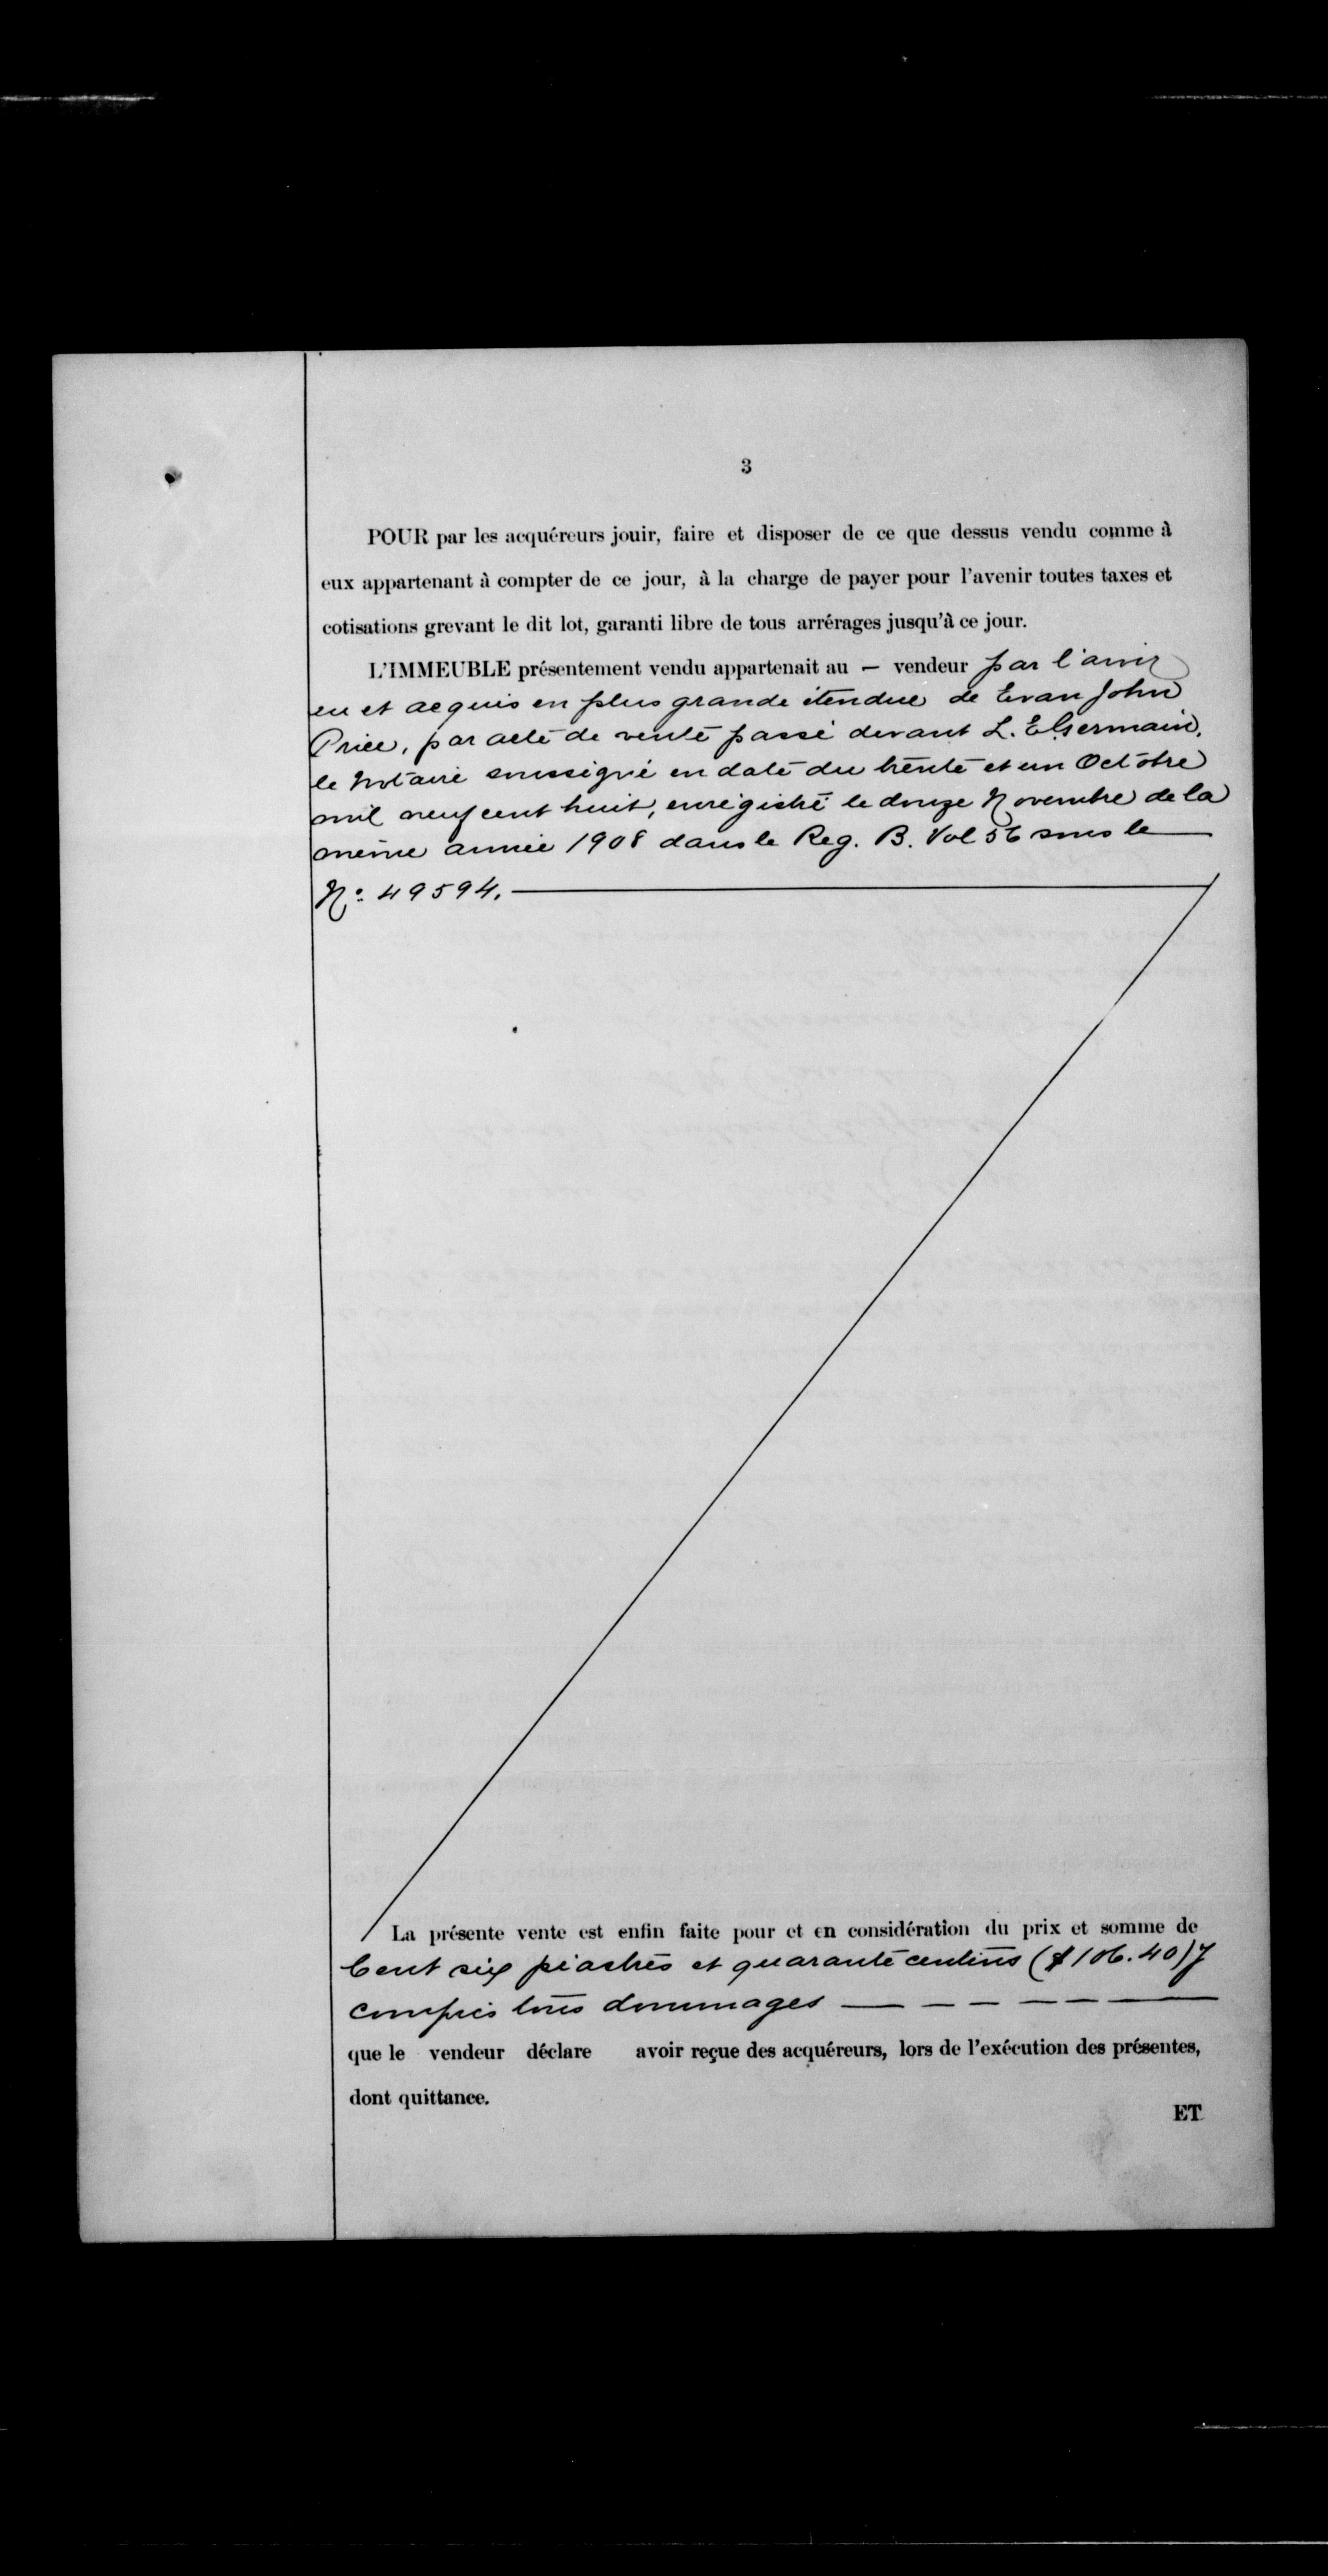 3
POUR par les acquéreurs jouir, faire et disposer de ce que dessus vendu comme à
eux appartenant à compter de ce jour, à la charge de payer pour l'avenir toutes taxes et
cotisations grevant le dit lot, garanti libre de tous arrérages jusqu'à ce jour.
L'IMMEUBLE présentement vendu appartenait au — vendeur par l'avoir
eu et acquis en plus grande étendue de Evan John
Price, par acte de vente passé devant L. E. Germain,
le Notaire soussigné en date du trente et un Octobre
mil neuf cent huit, enregistré le douze Novembre de la
même année 1908 dans le Reg. B. Vol 56 sous le
No: 49594.
La présente vente est enfin faite pour et en considération du prix et somme de
Cent six piastres et quarante centins ($106.40) y
compris tous dommages — — — — — —
que le vendeur déclare avoir reçue des acquéreurs, lors de l'exécution des présentes,
dont quittance.
ET